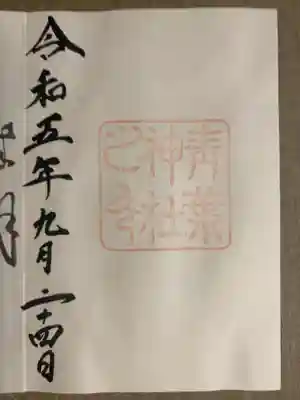 青葉
神社
之印
令和五年九月二十四日